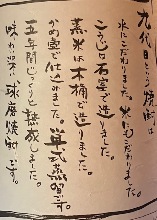 九代目という焼酎は
水にこだわりました。米にもこだわりました。
こうじは石室で造り
蒸米は木桶で造りました。
かめ壺で仕込みました。単式蒸留です。
五年間じっくりと熟成しました。
味わい深い球磨焼酎です。